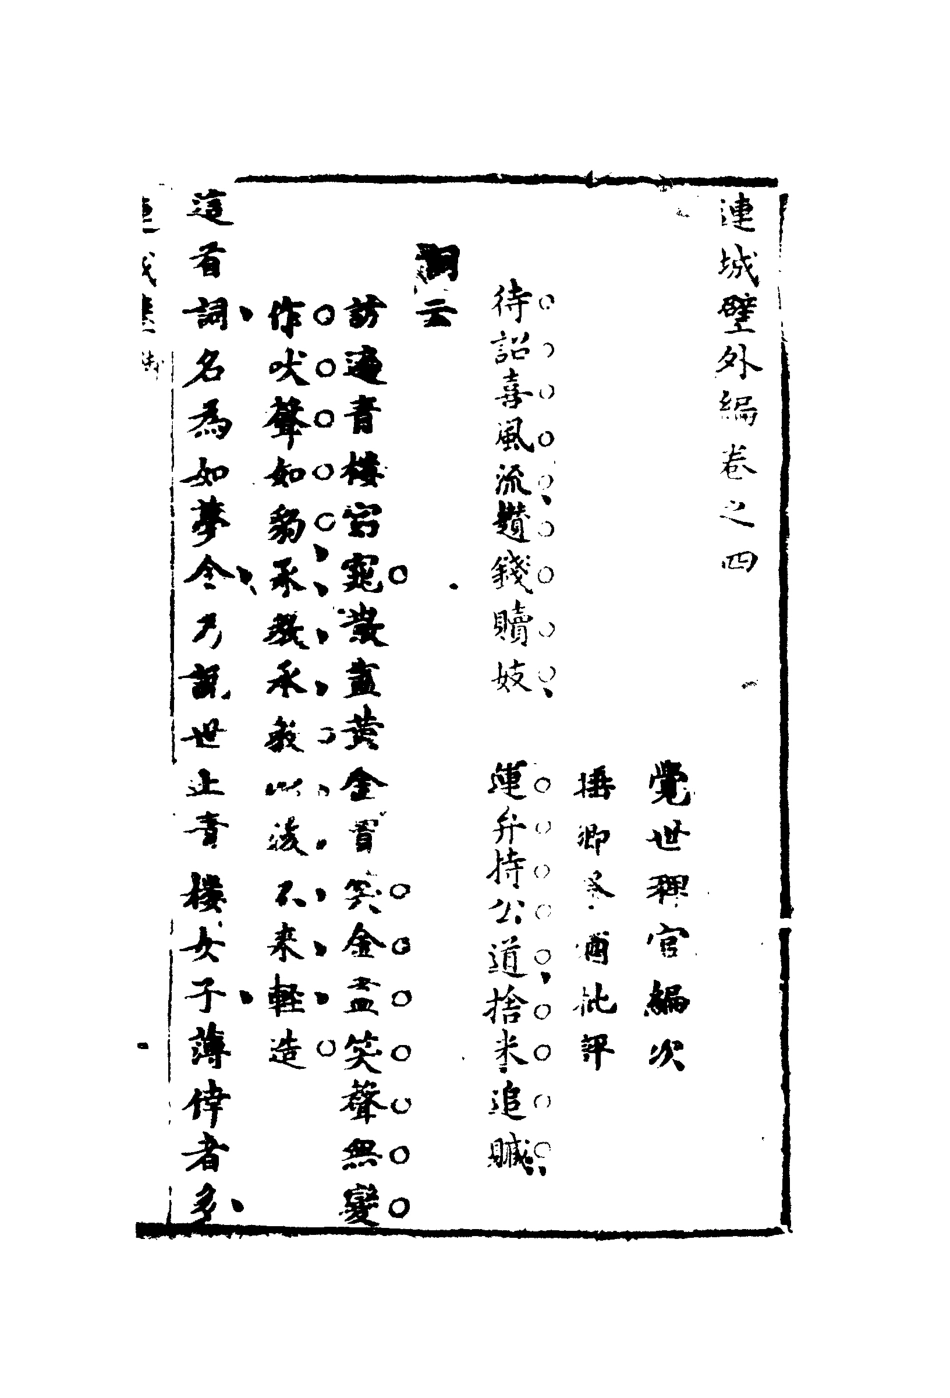 連城璧外編卷之四
覺世稗官編次
睡鄉祭酒批評
待詔喜風流趲錢贖妓 運弁持公道捨米追贓
詞云
訪遍青樓窈窕散盡黃金買笑金盡笑聲無變
作吠聲如豹承教承教以後不來輕造
這首詞名為如夢令乃說世上青樓女子薄倖者多